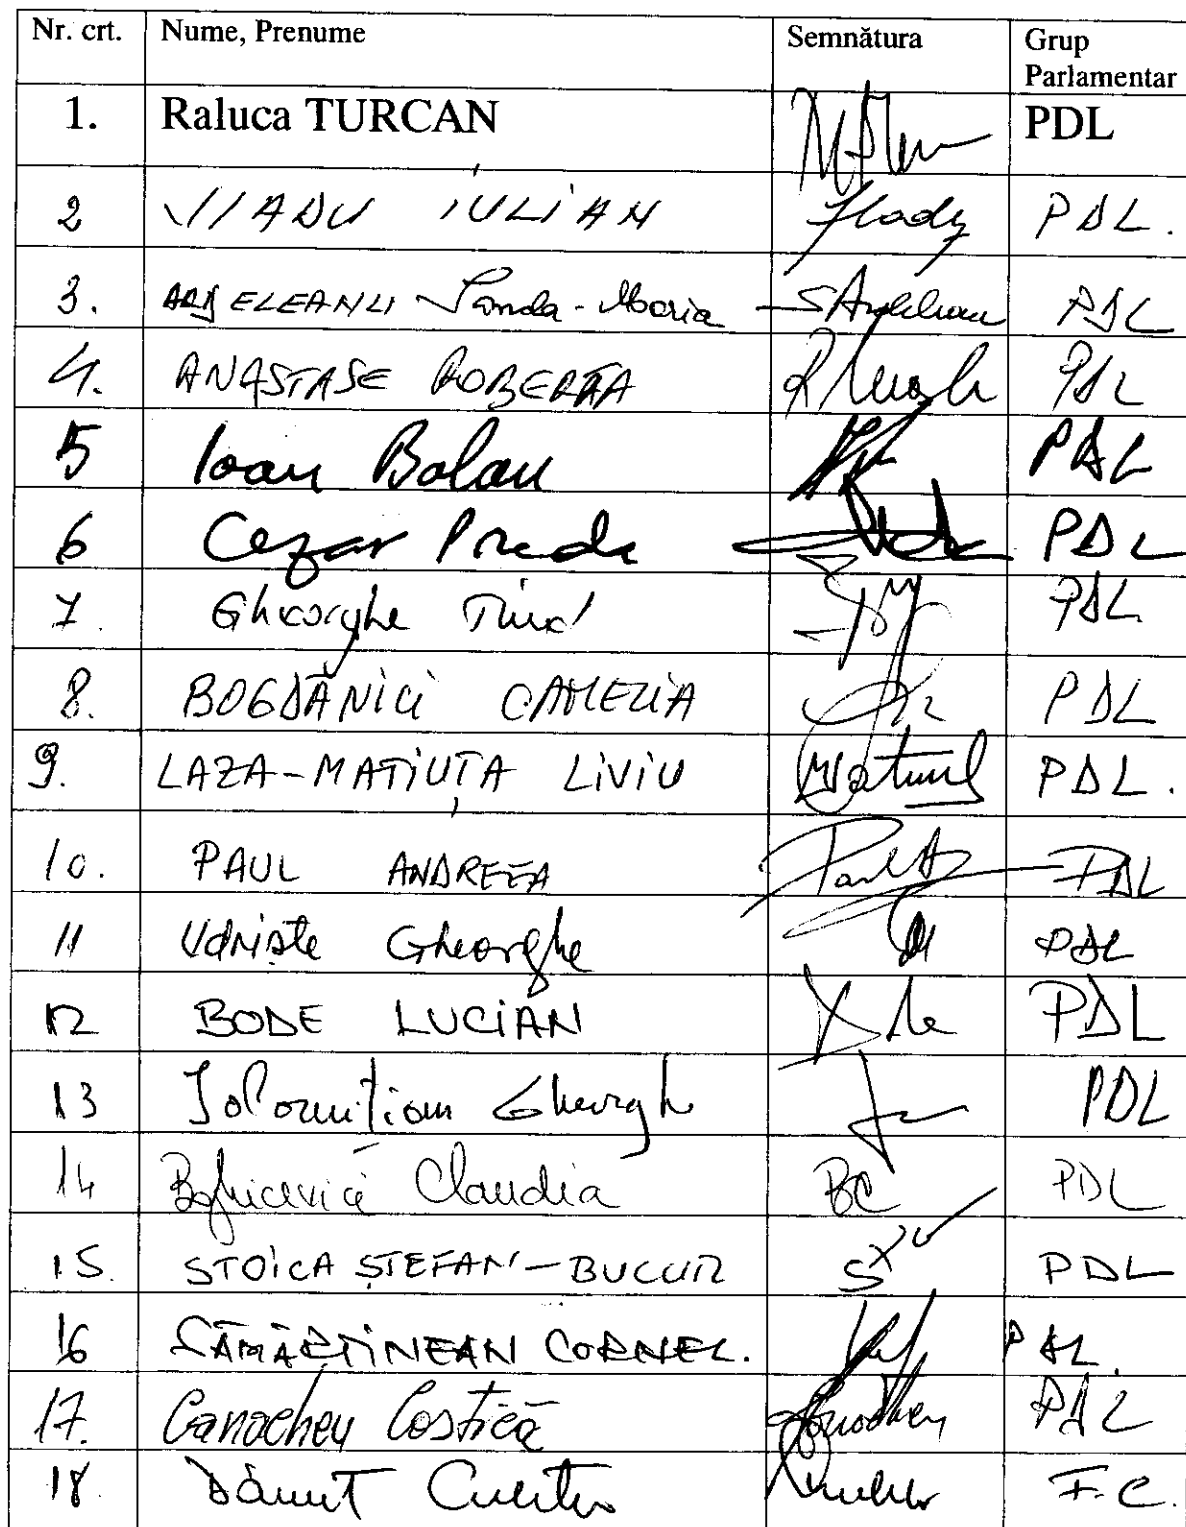 Nr. crt. Nume, Prenume Semnătura Grup Parlamentar
1. Raluca TURCAN PDL
2 VLADU IULIAN PDL.
3. ANGELEANU Sanda-Maria PDL
4. ANASTASE ROBERTA PDL
5 Ioan Balan PDL
6 Cezar Preda PDL
7. Gheorghe PDL
8. BOGDĂNICI CAMELIA PDL
9. LAZA-MATIUȚA LIVIU PDL.
10. PAUL ANDREEA PDL
11 Udriște Gheorghe PDL
12 BODE LUCIAN PDL
13 Ialomițianu Gheorgh PDL
14 Boghicevici Claudia BC PDL
15. STOICA ȘTEFAN-BUCUR PDL
16 SĂMĂRTINEAN CORNEL. PDL.
17. Canacheu Costică PDL
18. Dănuț F.C.